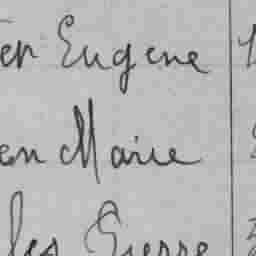 er Eugene
en Marie
les Pierre